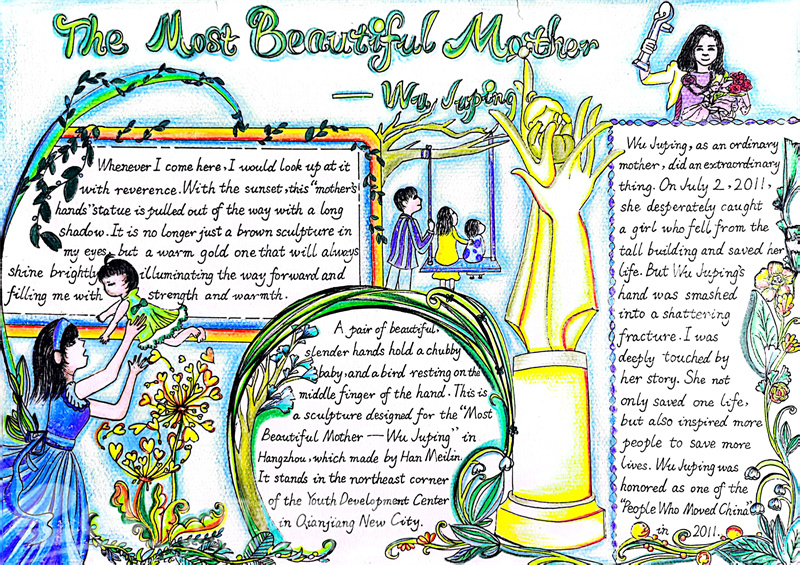 The Most Beautiful Mother
— Wu Juping
Whenever I come here, I would look up at it
with reverence. With the sunset, this "mother's
hands" statue is pulled out of the way with a long
shadow. It is no longer just a brown sculpture in
my eyes, but a warm gold one that will always
shine brightly illuminating the way forward and
filling me with strength and warmth.
A pair of beautiful,
slender hands hold a chubby
baby, and a bird resting on the
middle finger of the hand. This is
a sculpture designed for the "Most
Beautiful Mother — Wu Juping" in
Hangzhou, which made by Han Meilin.
It stands in the northeast corner
of the Youth Development Center
in Qianjiang New City.
Wu Juping, as an ordinary
mother, did an extraordinary
thing. On July 2, 2011,
she desperately caught
a girl who fell from the
tall building and saved her
life. But Wu Juping's
hand was smashed
into a shattering
fracture. I was
deeply touched by
her story. She not
only saved one life,
but also inspired more
people to save more
lives. Wu Juping was
honored as one of the
"People Who Moved China
in 2011.